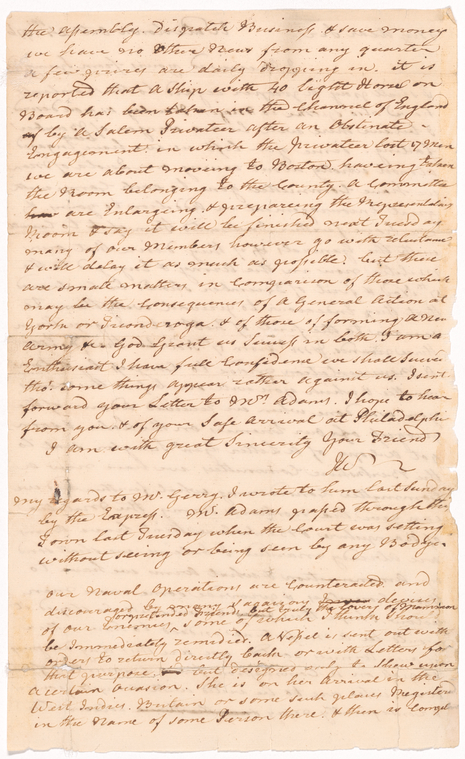 the assembly. Dispatch Business, & save money
we have no other News from any quarter
a few prizes are daily dropping in. it is
reported that a Ship with 40 light Horse on
Board has been taken in the Channel of England
by a Salem Privateer after an Obstinate
Engagement. in which the Privateer lost 17 men
we are about moveing to Boston. haveing taken
the Room belonging to the County. a Committee
are Enlarging, & prepareing the Representatives
Room & say it will be finished next Tuesday
many of our Members however go with reluctance
& will delay it as much as possible. but these
are small matters in Comparison of those which
may be the Consequences of a General Action at
York or Ticonderoga. & of those of forming a New
Army. God Grant us Success in both. I am a
Enthusiast I have full Confidence we shall succeed
tho' some things appear rather against us. I sent
forward your Letter to Mrs. Adams. I hope to hear
from you. & of your Safe Arrival at Philadelphia
I am with great Sincerity Your Friend
my regards to Mr. Gerry. I wrote to him last Sunday
by the Express. Mr. Adams passed through this
Town last Tuesday when the Court was setting
without seeing or being seen by any Body.
our Naval Operations are Counteracted and
discouraged by devices
pretended Friends, but truly the lovers of mammon
of our enemies, some of which I think should
be Immediately remedied. a Vessel is sent out with
orders to return directly back or with Letters for
that purpose, but designed only to show upon
a certain Occasion. She is on her Arrival in the
West Indies. Britain or some such places Registerd
in the Name of some Person there. & then is